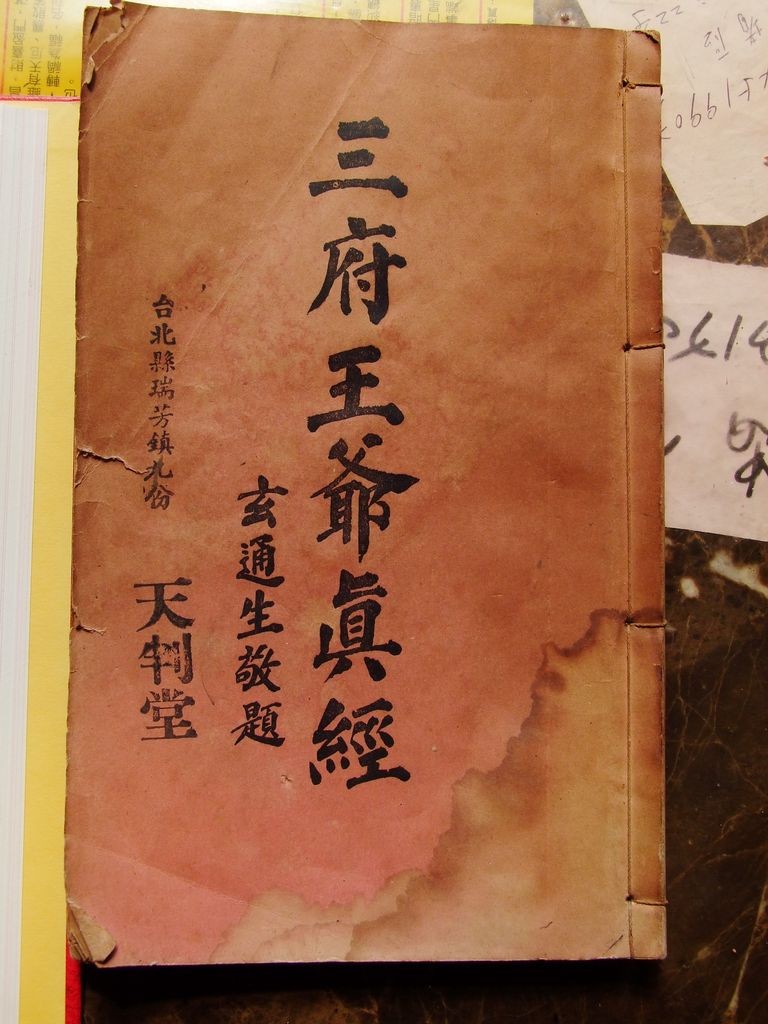 三府王爺眞經
玄通生敬題
台北縣瑞芳鎮九份
天判堂